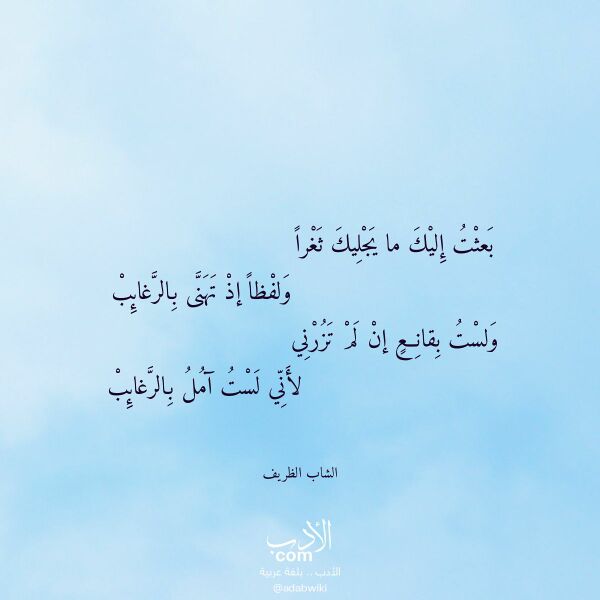 بَعثْتُ إِليْكَ ما يَجْلِيكَ ثَغْراً
وَلفْظاً إذْ تَهَنَّى بِالرَّغائِبْ
وَلسْتُ بِقانِعٍ إنْ لَمْ تَزُرْنِي
لأَنِّي لَسْتُ آمُلُ بِالرَّغائِبْ
الشاب الظريف
الأدب
.com
الأدب .. بلغة عربية
@adabwiki